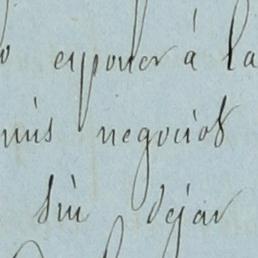 esponer á la
mis negocios
sin dejar